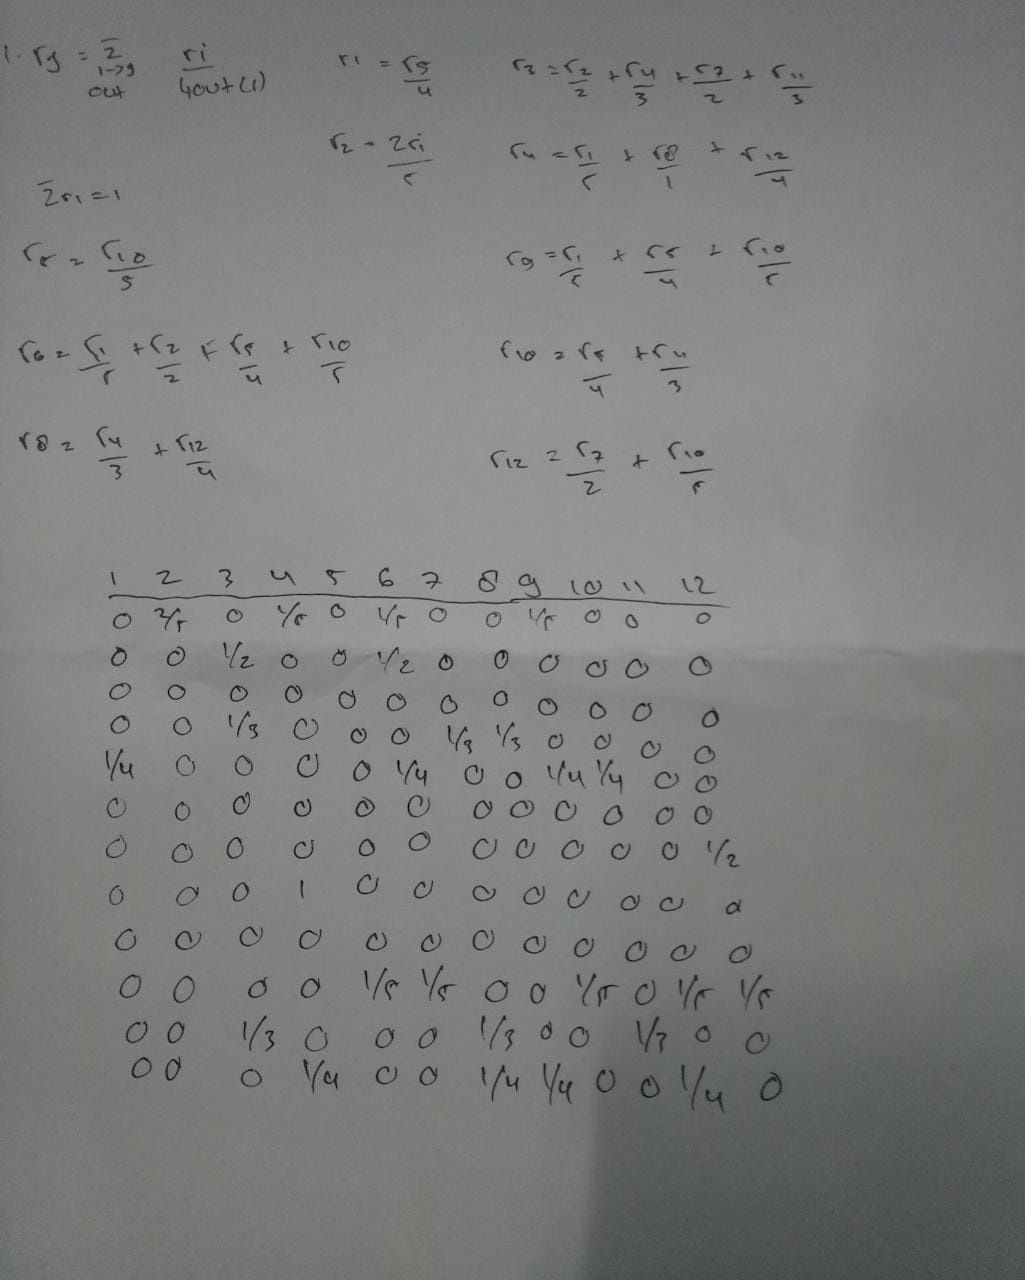 1. rj = Σ ri
i→j dout(i)
out
r1 = r5/4 r3 = r2/2 + r4/3 + r7/2 + r11/3
r2 = 2r1/5 r4 = r1/5 + r8/1 + r12/4
Σr1 = 1
r5 = r10/5 r9 = r1/5 + r5/4 + r10/5
r6 = r1/5 + r2/2 + r5/4 + r10/5 r10 = r5/4 + r4/3
r8 = r4/3 + r12/4 r12 = r7/2 + r10/5
1 2 3 4 5 6 7 8 9 10 11 12
0 2/5 0 1/5 0 1/5 0 0 1/5 0 0 0
0 0 1/2 0 0 1/2 0 0 0 0 0 0
0 0 0 0 0 0 0 0 0 0 0 0
0 0 1/3 0 0 0 1/3 1/3 0 0 0 0
1/4 0 0 0 0 1/4 0 0 1/4 1/4 0 0
0 0 0 0 0 0 0 0 0 0 0 0
0 0 0 0 0 0 0 0 0 0 0 1/2
0 0 0 1 0 0 0 0 0 0 0 0
0 0 0 0 0 0 0 0 0 0 0 0
0 0 0 0 1/5 1/5 0 0 1/5 0 1/5 1/5
0 0 1/3 0 0 0 1/3 0 0 1/3 0 0
0 0 0 1/4 0 0 1/4 1/4 0 0 1/4 0